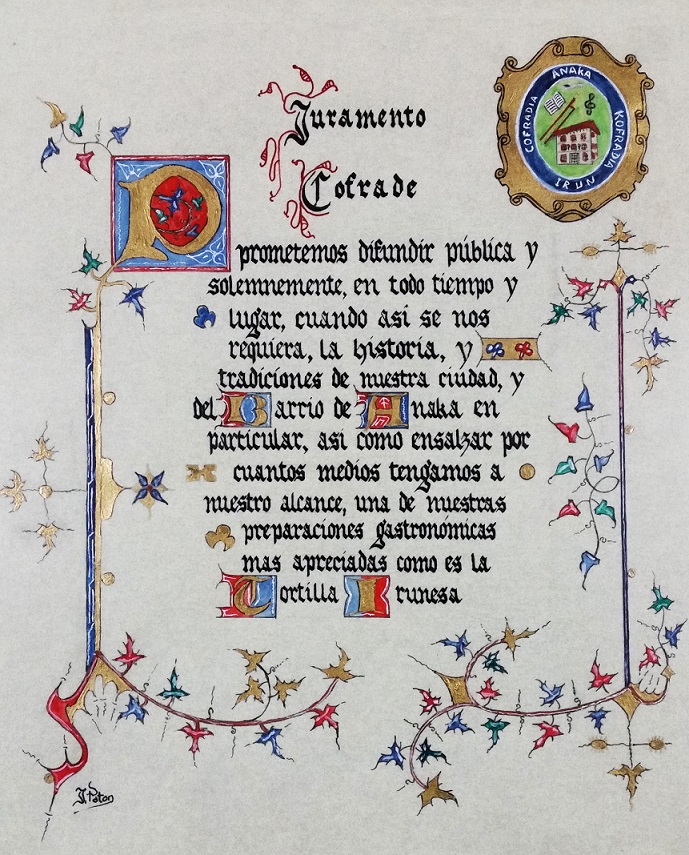 Juramento
Cofrade
COFRADIA ANAKA KOFRADIA
IRUN
Prometemos difundir pública y
solemnemente, en todo tiempo y
lugar, cuando así se nos
requiera, la historia, y
tradiciones de nuestra ciudad, y
del Barrio de Anaka en
particular, así como ensalzar por
cuantos medios tengamos a
nuestro alcance, una de nuestras
preparaciones gastronómicas
mas apreciadas como es la
Tortilla Irunesa
J. Paton